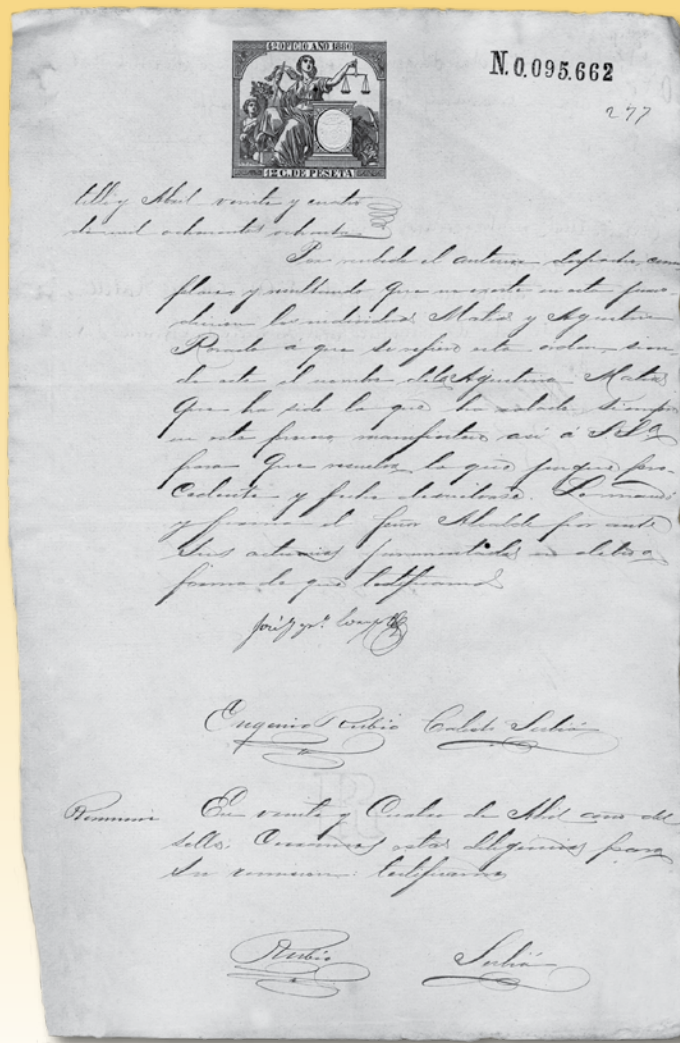 Oficio AÑO 1880
N.0.095.662
277
12 C. DE PESETA
y Abril veinte y cuatro
de mil ochocientos ochenta
Por recibido el anterior
y resultando que no existe en esta
los individuos Matias y Agustina
Rosado á que se refiere esta orden,
de este el nombre de la Agustina Matias
que ha sido la que ha estado siempre
en este manifiestese así á S. S.ª
para que resuelva lo que juzgue pro-
cedente y fecho devuelvase. Lo mandó
y firma el Señor Alcalde por ante
sus actuarios juramentados en debida
forma de que testificamos
José
Eugenio Rubio Julián
Remision
En veinte y Cuatro de Abril año del
sello: estas diligencias para
su remision: testificamos
Rubio Julián